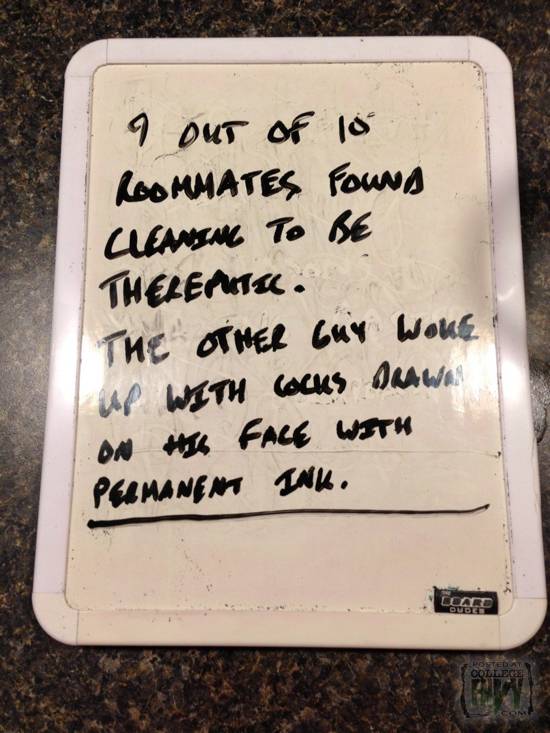 9 OUT OF 10
ROOMMATES FOUND
CLEANING TO BE
THEREPUTIC.
THE OTHER GUY WOKE
UP WITH COCKS DRAWN
ON HIS FACE WITH
PERMANENT INK.
THE
BOARD
DUDES
POSTED AT
COLLEGE
HUMOR
.COM